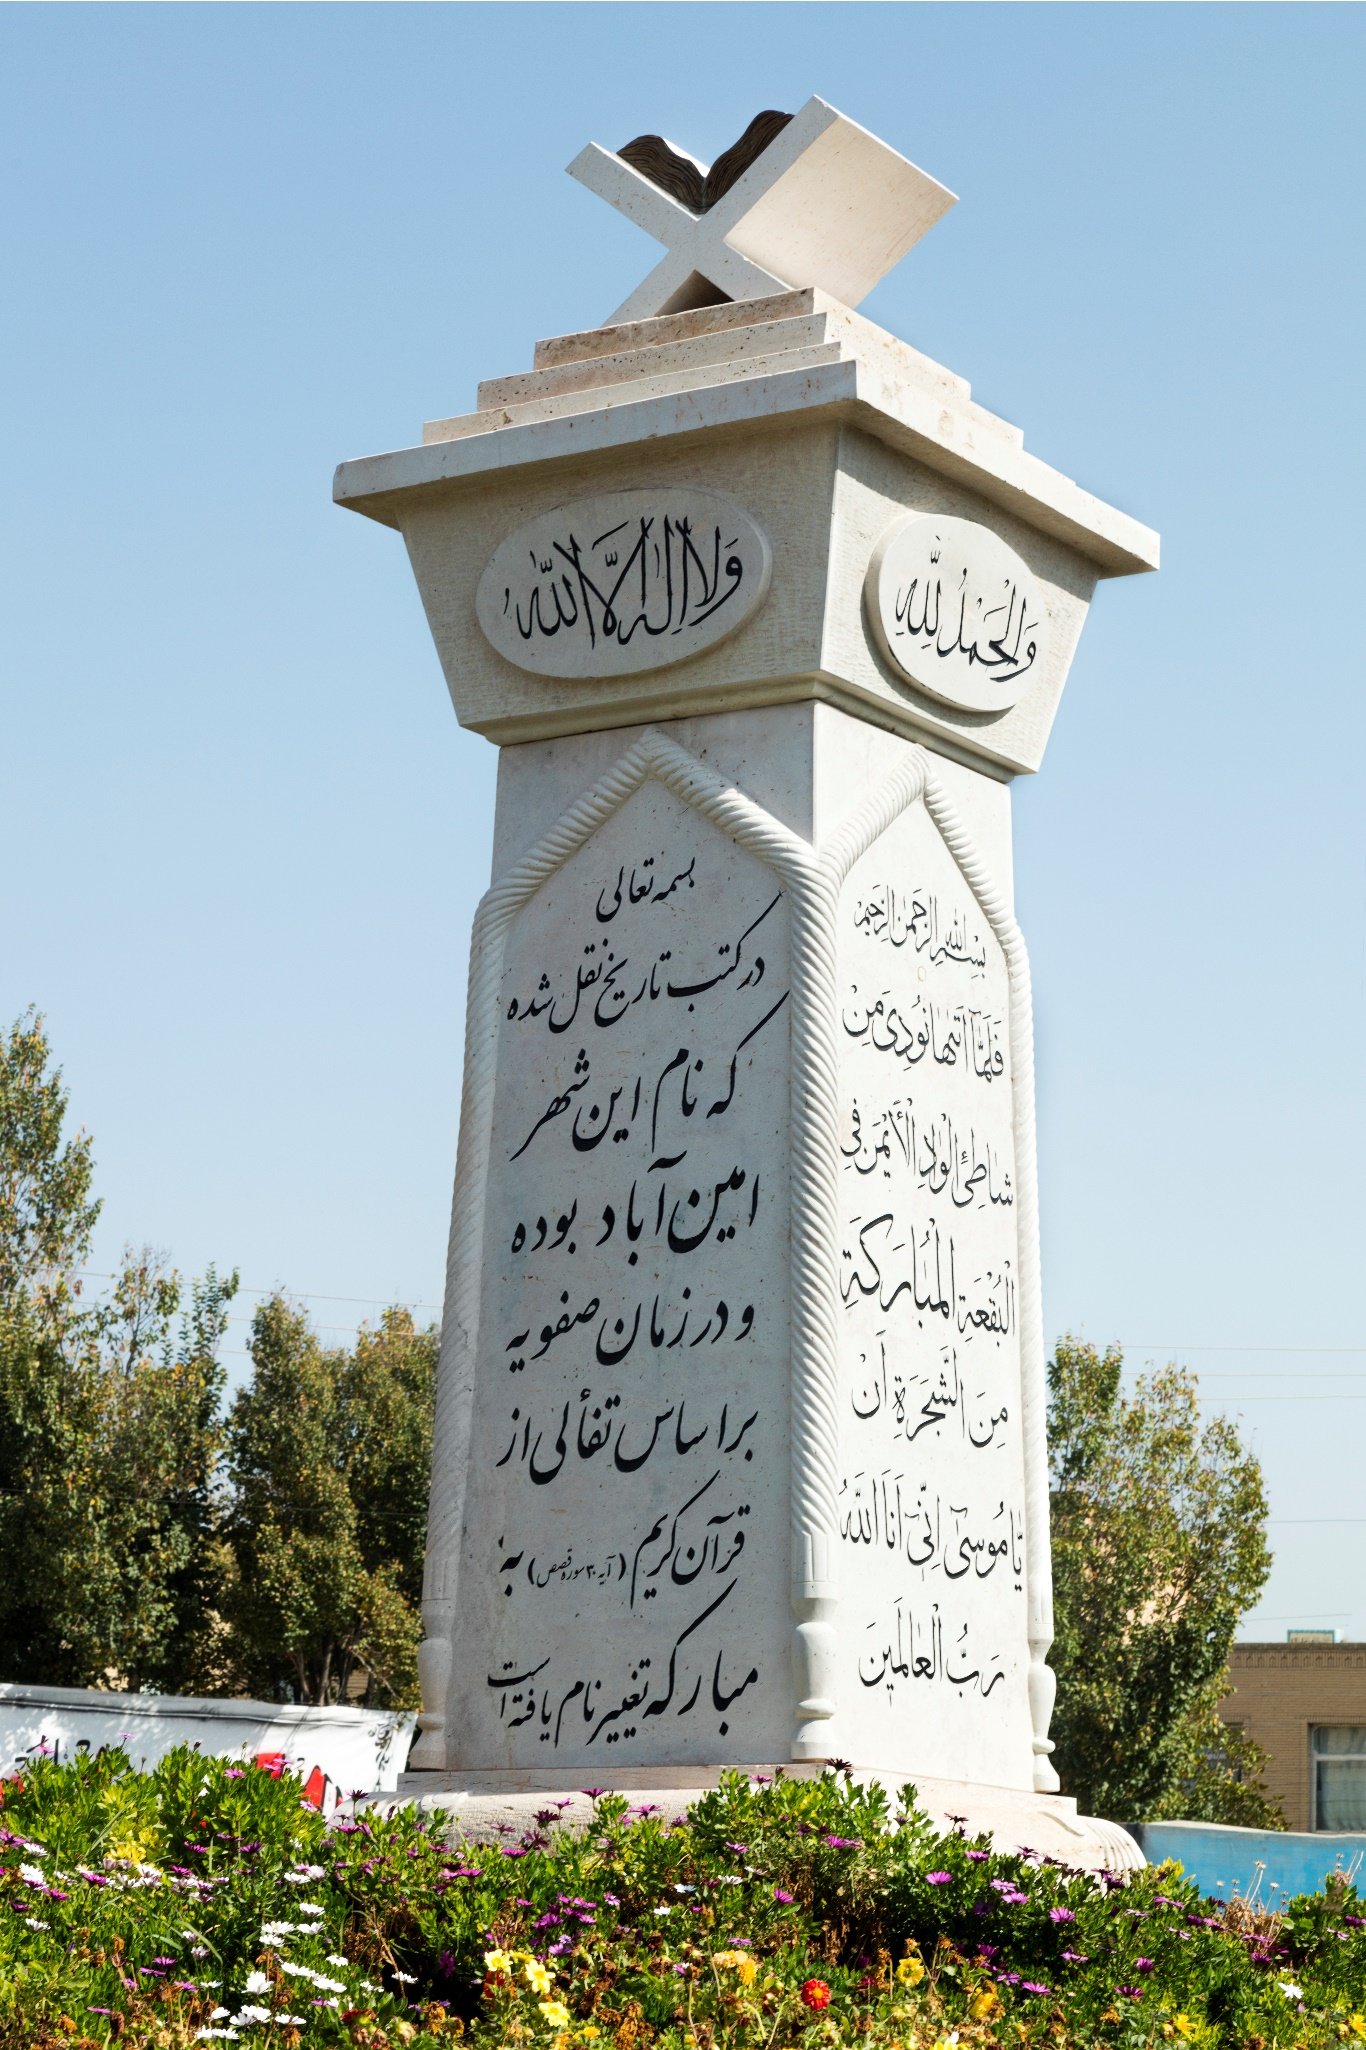 وَلا اِلٰهَ اِلَّا اللّٰهُ
وَالْحَمْدُ لِلّٰهِ
بسمه تعالی
در کتب تاریخ نقل شده
که نام این شهر
امین آباد بوده
و در زمان صفویه
بر اساس تفألی از
قرآن کریم (آیه ۳۰ سوره قصص) به
مبارکه تغییر نام یافته است
بِسْمِ اللّٰهِ الرَّحْمٰنِ الرَّحیمِ
فَلَمَّا اَتٰیهَا نُودِیَ مِنْ
شَاطِئِ الْوَادِ الْأَیْمَنِ فِی
الْبُقْعَةِ الْمُبَارَكَةِ
مِنَ الشَّجَرَةِ اَن
یَا مُوسَیٓ اِنِّیٓ اَنَا اللّٰهُ
رَبُّ الْعَالَمِینَ